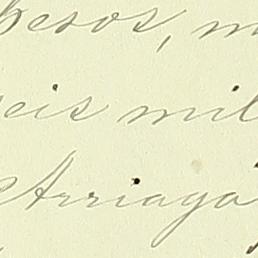 pesos, m
eis mil
Arriaga